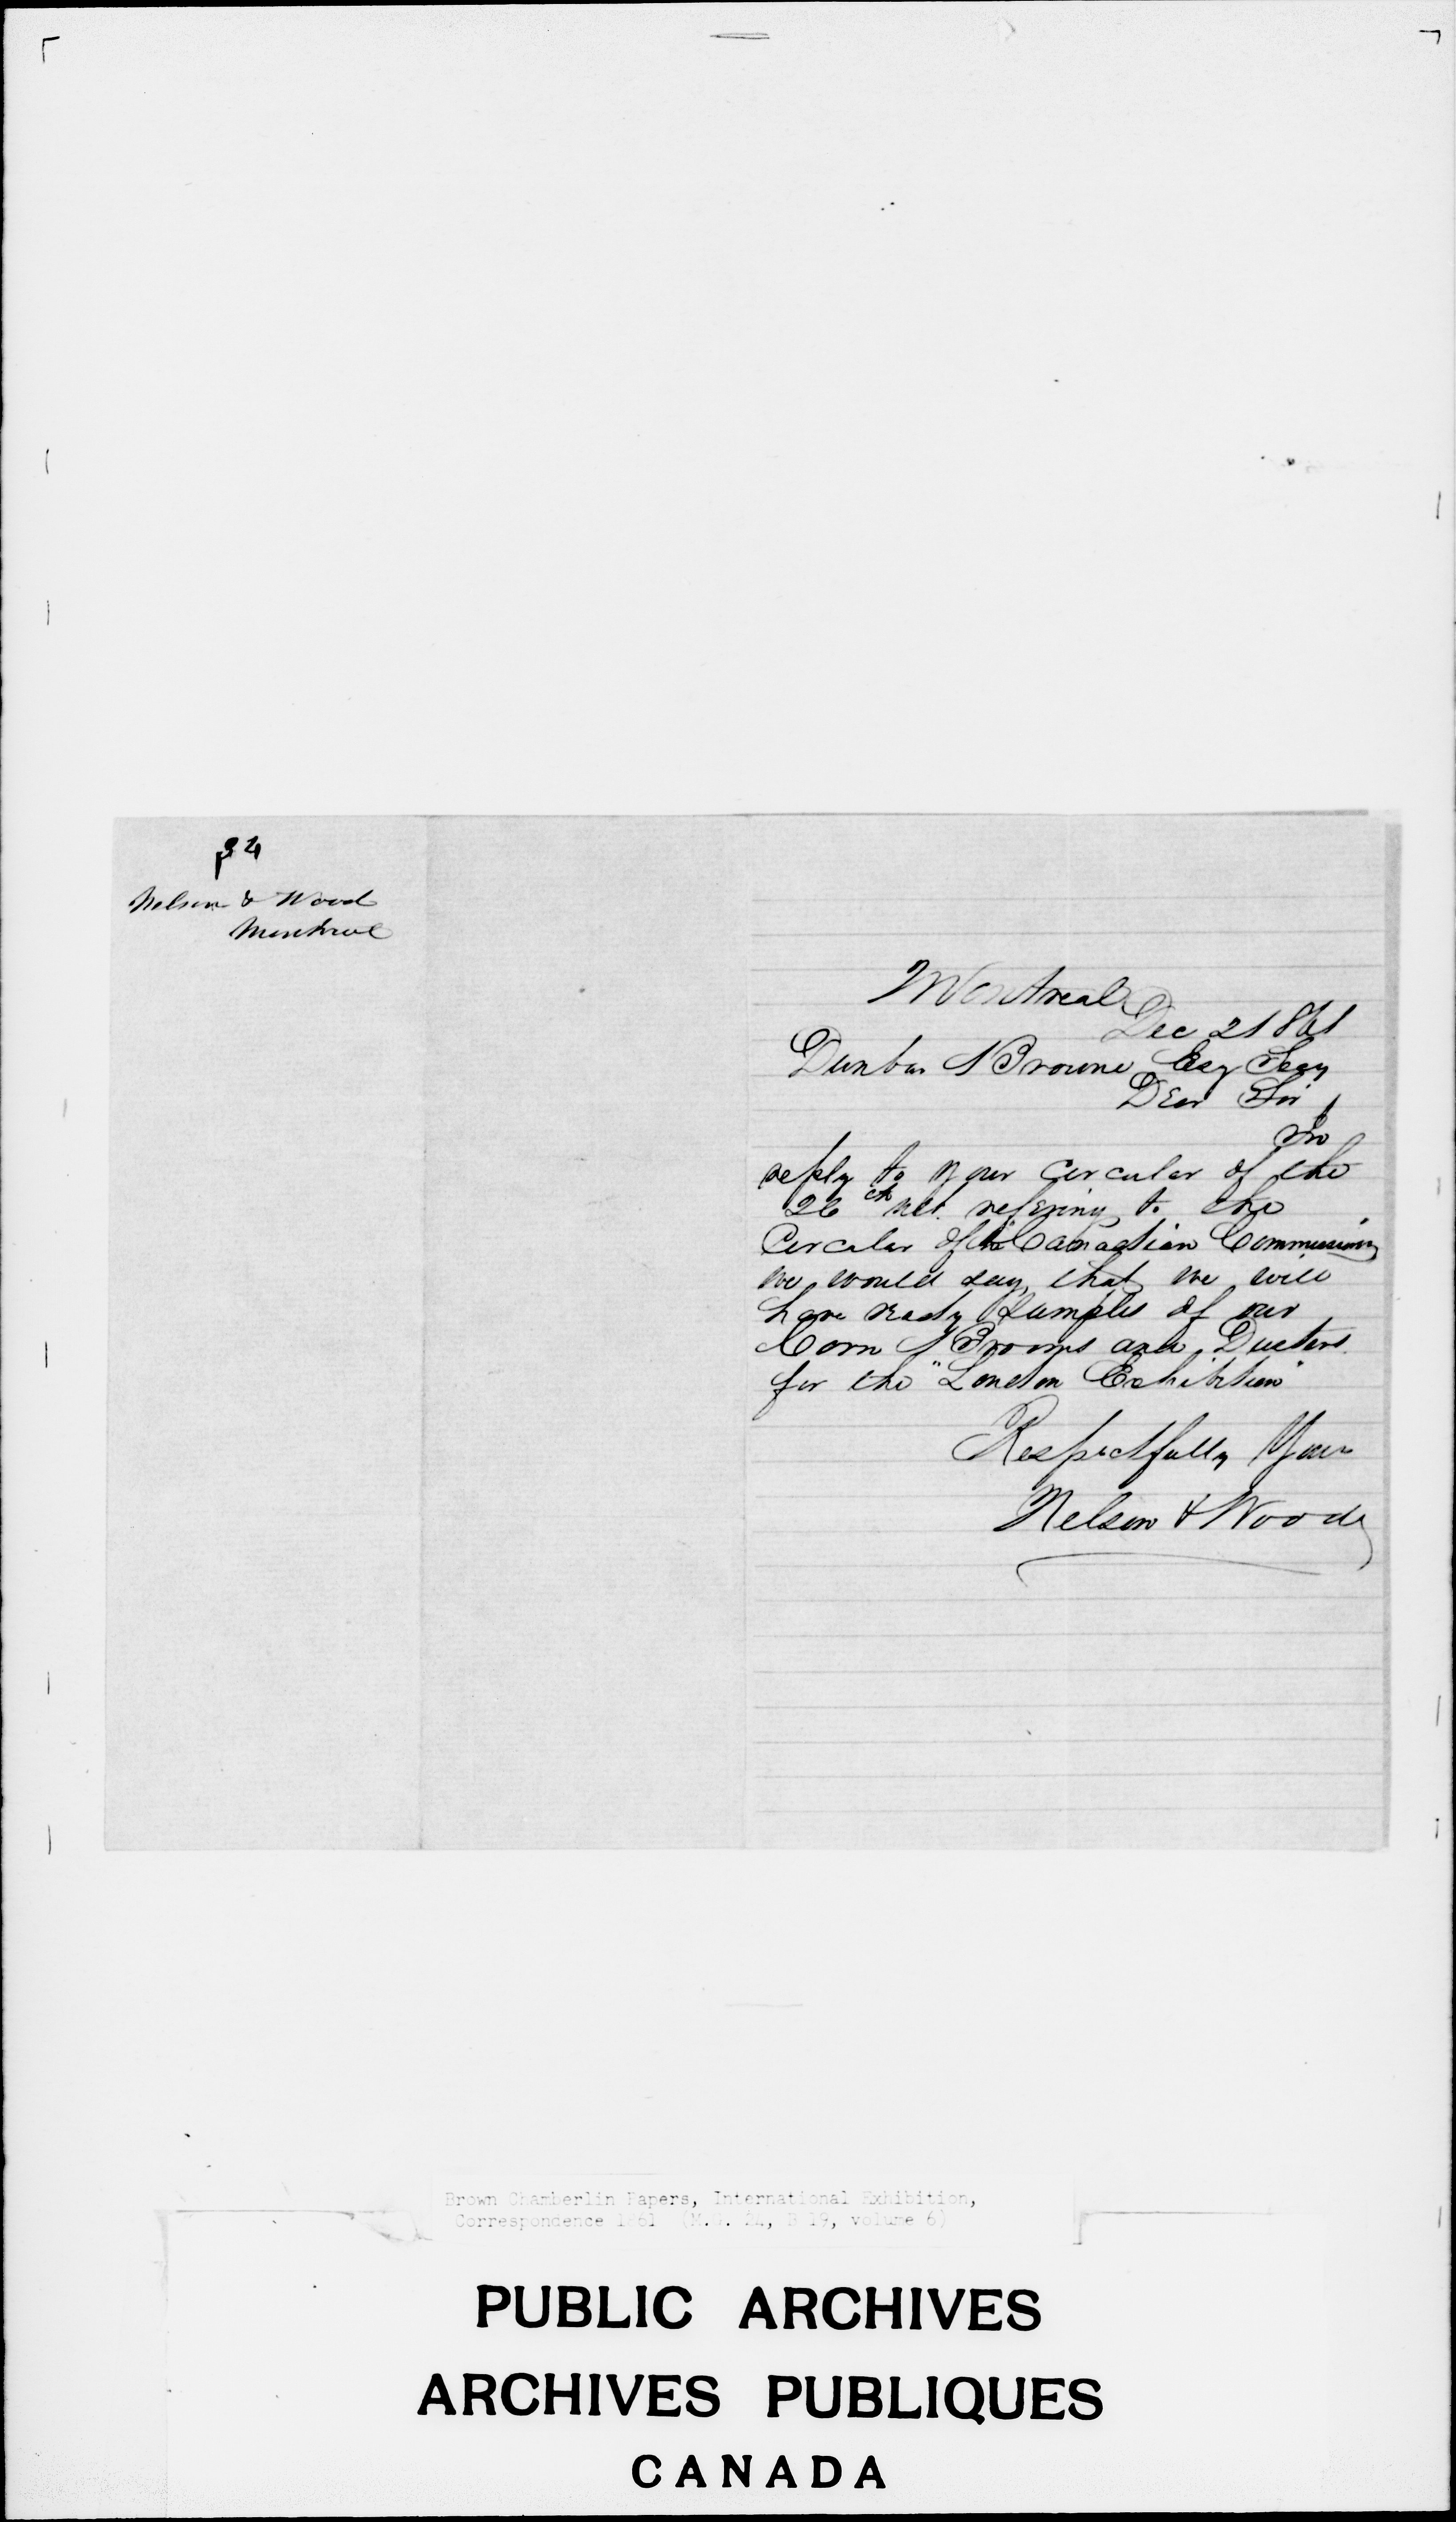 Nelson & Wood
Montreal
Montreal
Dec 2 1861
Dunbar Browne Esq Secy
Dear Sir
In
reply to your circular of the
26th ult. refering to the
Circular of the "Canadian Commission"
we would say, that we will
have ready Samples of our
Corn Brooms and Dusters
for the "London Exhibition"
Respectfully Yours
Nelson & Wood
Brown Chamberlin Papers, International Exhibition,
Correspondence 1861 (M.G. 24, B 19, volume 6)
PUBLIC ARCHIVES
ARCHIVES PUBLIQUES
CANADA